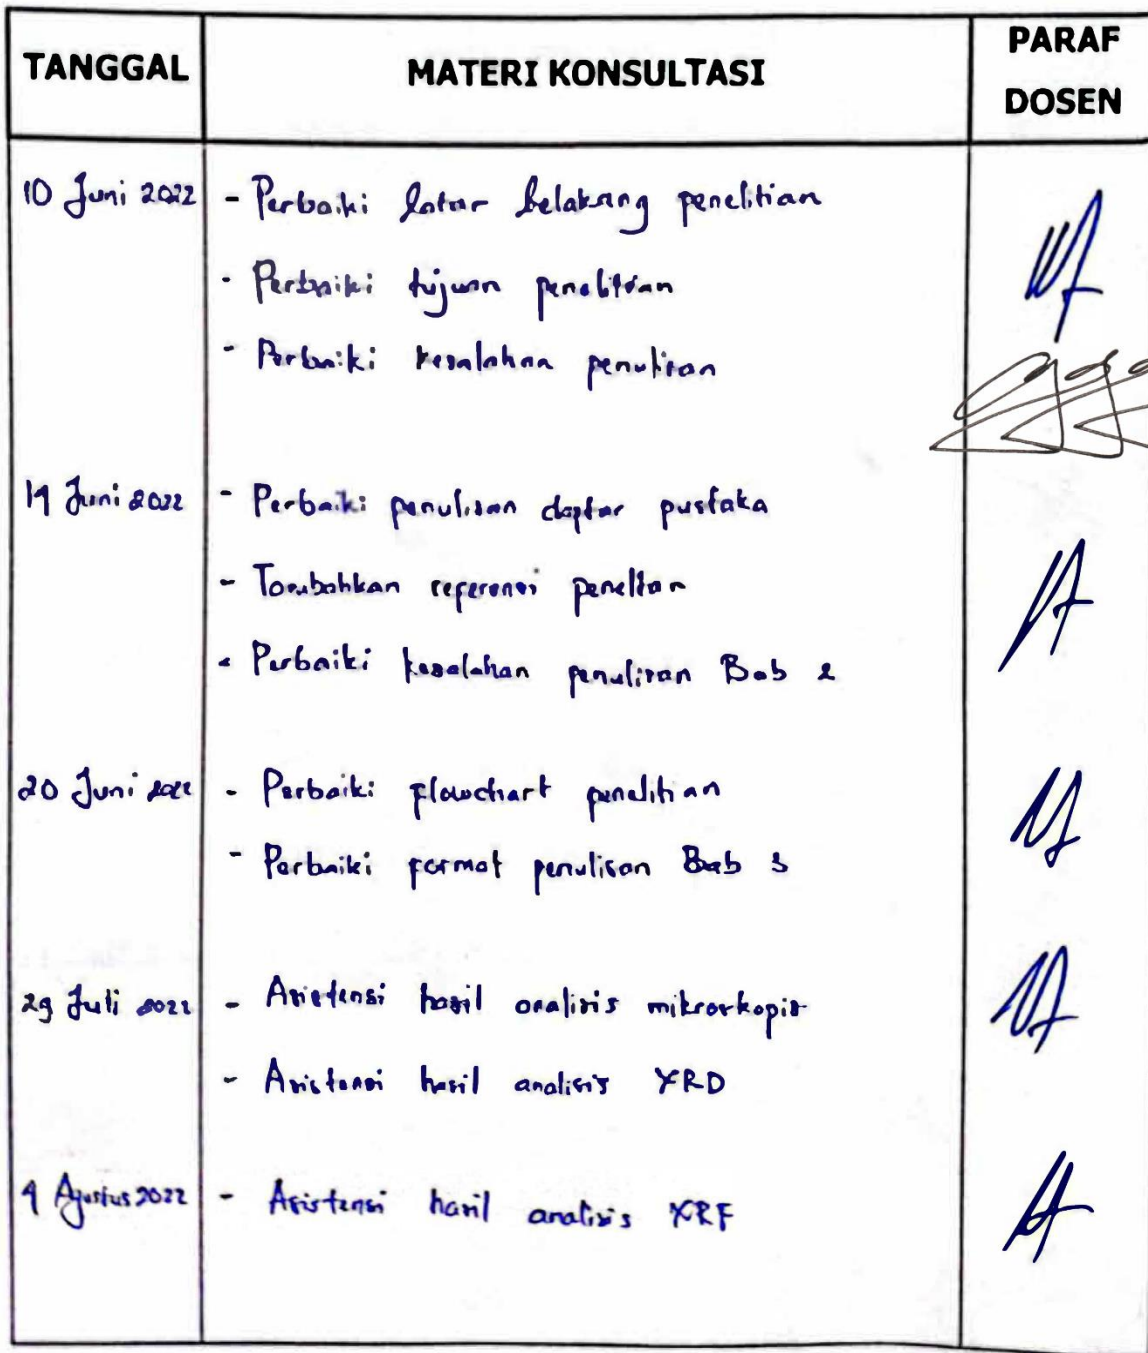 TANGGAL MATERI KONSULTASI PARAF DOSEN
10 Juni 2022 - Perbaiki latar belakang penelitian
- Perbaiki tujuan penelitian
- Perbaiki kesalahan penulisan
14 Juni 2022 - Perbaiki penulisan daftar pustaka
- Tambahkan referensi penelitian
- Perbaiki kesalahan penulisan Bab 2
20 Juni 2022 - Perbaiki flowchart penelitian
- Perbaiki format penulisan Bab 3
29 Juli 2022 - Asistensi hasil analisis mikroskopis
- Asistensi hasil analisis XRD
4 Agustus 2022 - Asistensi hasil analisis XRF